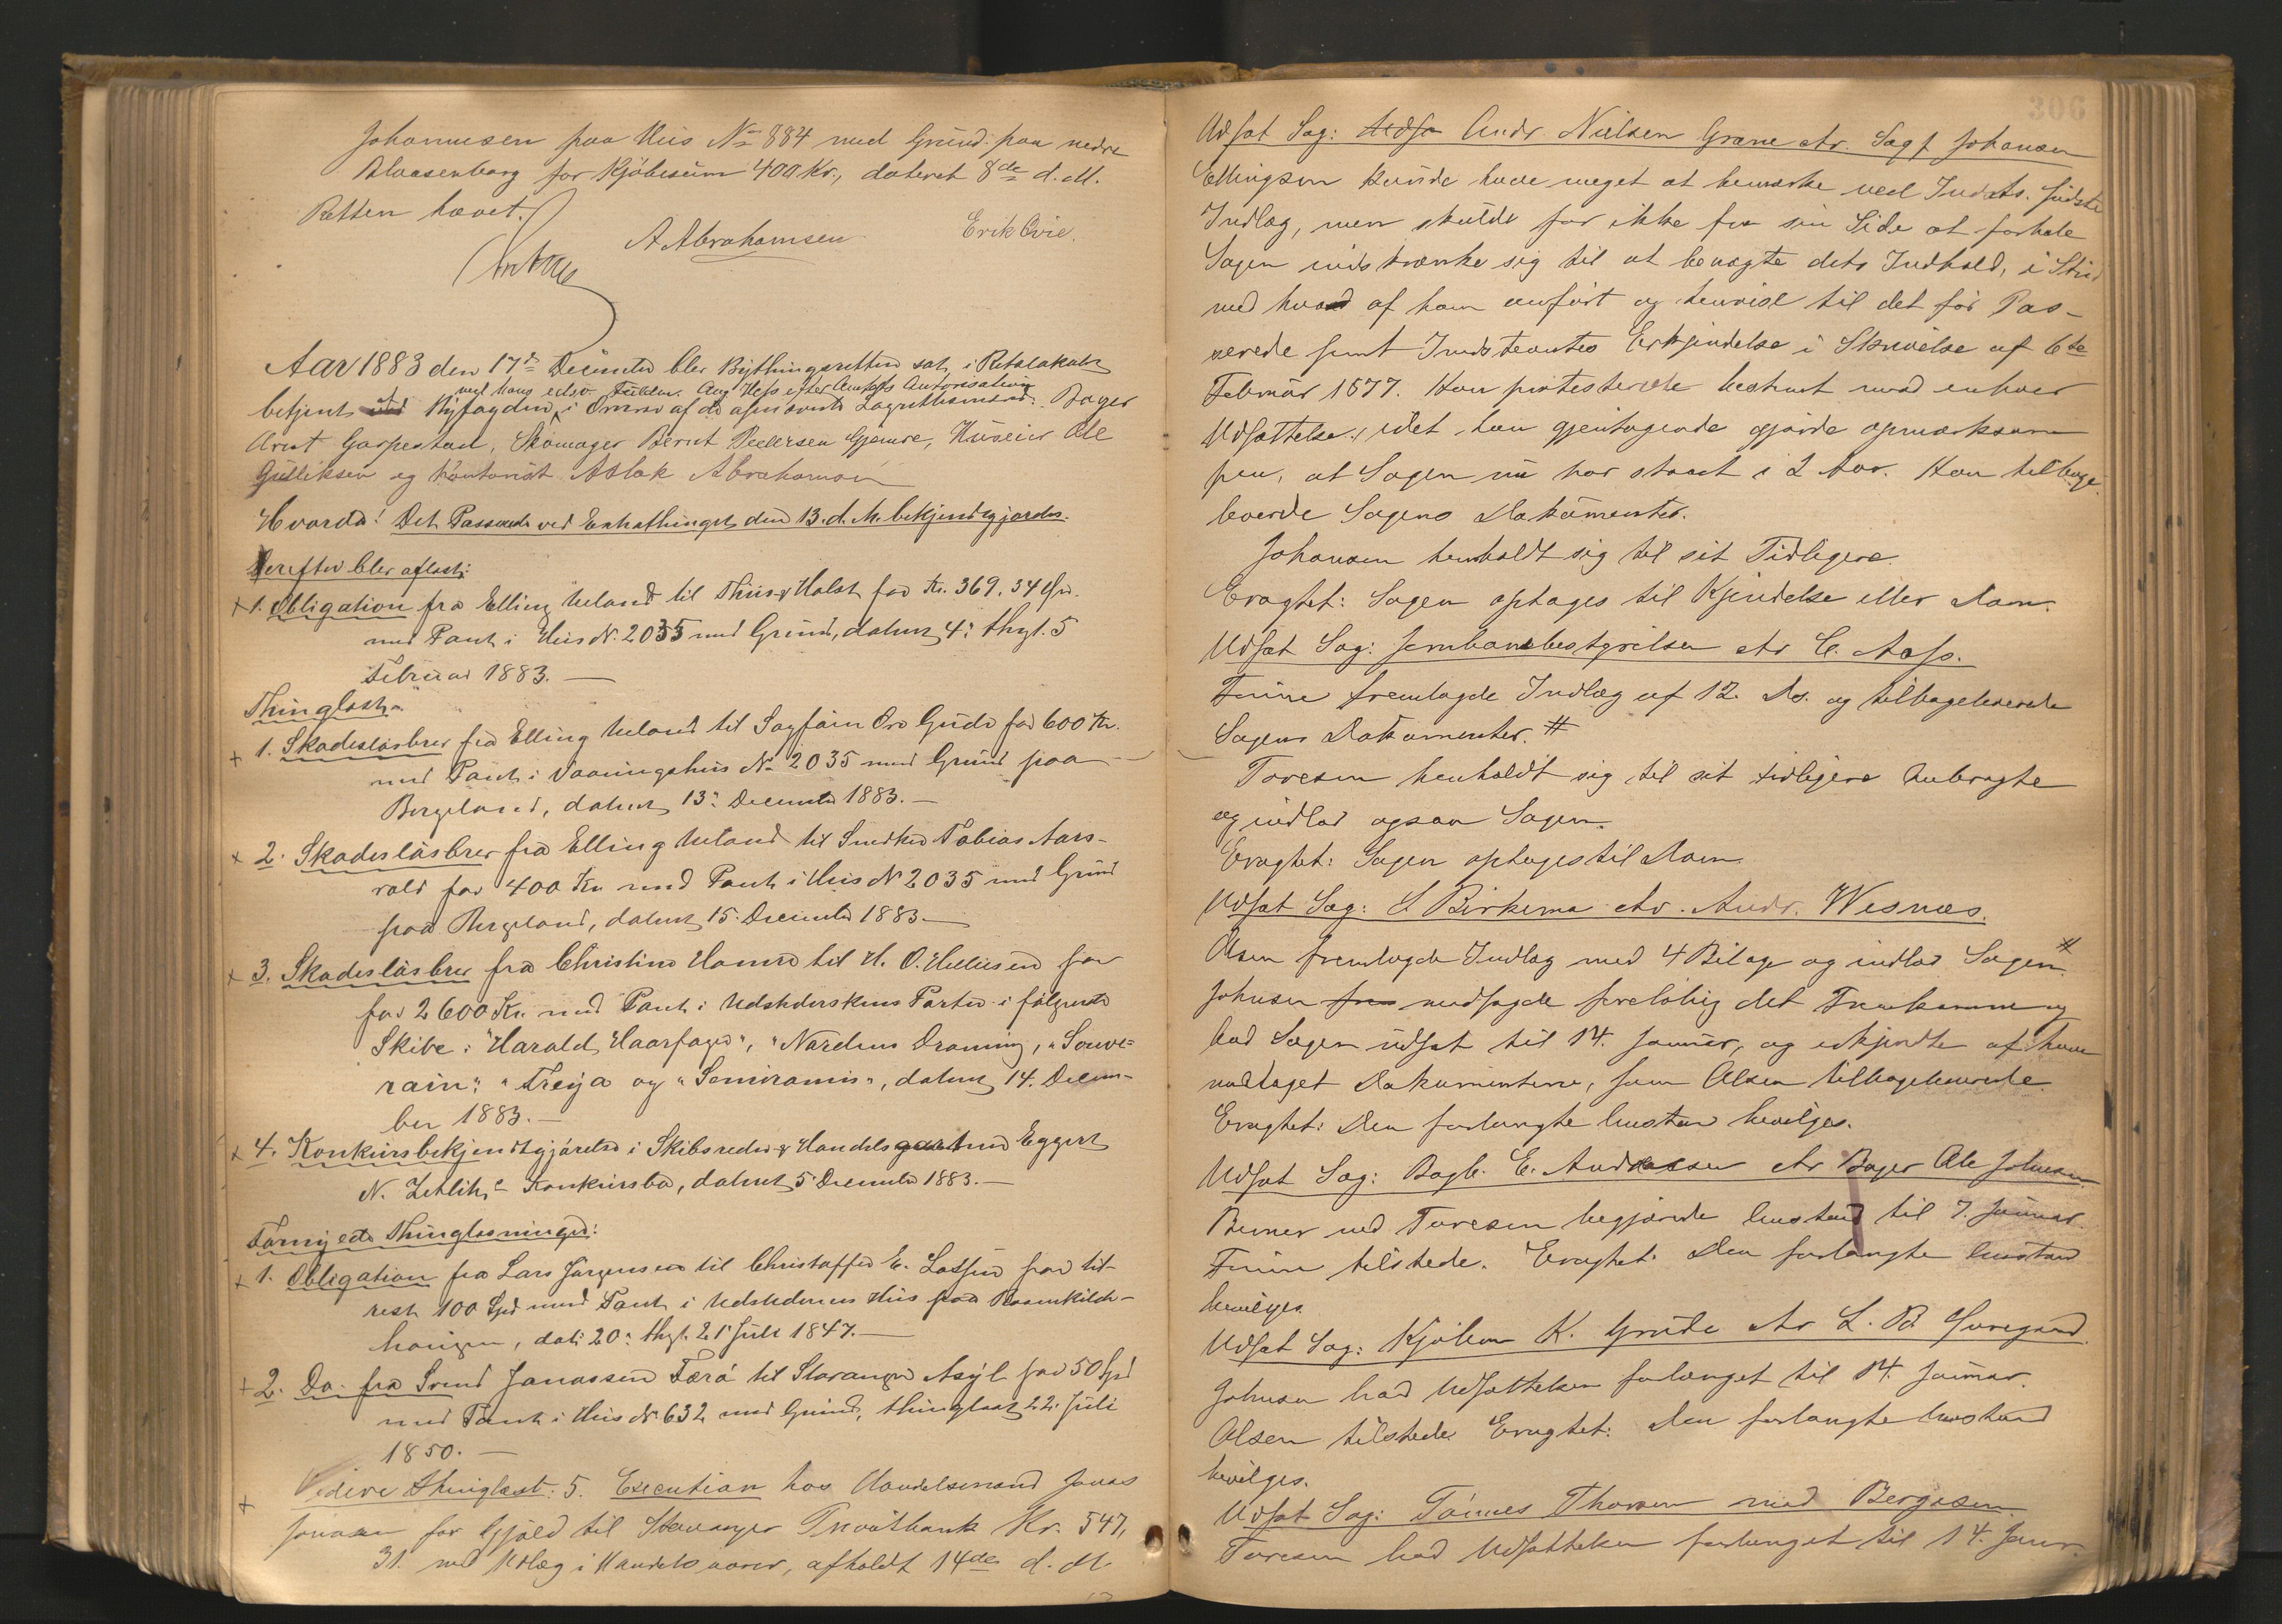 Johannesen paa Huus No 884 med Grund paa nedre
Blaasenborg for Kjøbesum 400 Kr., dateret 8de d. M.
Retten hævet.
A Abrahamsen Erik Qvie.
Aar 1883 den 17de December blev Bythingsretten sat i Retslokalet
med hans edsv. Fuldm. Aug. Hess efter Amtets Autorisation
betjent Byfogden i Overvær af de opnævnte Lagrettesmænd: Bager
Arnt Garpestad, Skomager Bernt Pedersen Gjemre, Huseier Ole
Gulliksen og Kontorist Aslak Abrahamsen
Hvorda: Det Passerede ved Extrathinget den 13. d. M. bekjendtgjordes.
Derefter blev aflæst:
+ 1. Obligation fra Elling Ueland til Thiis & Holst for Kr. 369.34 Øre
med Pant i Huus N. 2035 med Grund, dateret 4: thgl. 5
Februar 1883. —
Thinglæst:
+ 1. Skadesløsbrev fra Elling Ueland til Sagfører Ove Gude for 600 Kr.
med Pant i Vaaningshus No 2035 med Grund paa
Bergeland, dateret 13: December 1883. —
+ 2. Skadesløsbrev fra Elling Ueland til Snedker Tobias Aars-
vold for 400 Kr. med Pant i Huus N 2035 med Grund
paa Bergeland, dateret 15. December 1883. —
+ 3. Skadesløsbrev fra Christine Hansen til H. O. Helliesen for
for 2600 Kr. med Pant i Udstederskens Parter i følgende
Skibe: "Harald Haarfager", "Nordens Dronning", "Souve-
rain", "Freya" og "Semiramis", dateret 14. Decem-
ber 1883. —
+ 4. Konkursbekjendtgjørelse i Skibsreder & Handelsgartner Eggert
N. Zetlitz's Konkursbo, dateret 5 December 1883. —
Fornyede Thinglæsninger:
+ 1. Obligation fra Lars Jørgensen til Christoffer E. Lassen for til-
rest 100 Spd med Pant i Udstederens Hus paa Rosenkilde-
haugen, dat: 20: thgl. 21 Juli 1847. —
+ 2. Do. fra Svend Jonassen Færø til Stavanger Asyl for 50 Spd
med Pant i Hus N. 632 med Grund, thinglæst 22. Juli
1850. —
+ Videre thinglæst: 5. Execution hos Handelsmand Jonas
Jonasen for Gjæld til Stavanger Privatbank Kr. 547,
31. med Udlæg i Handelsvarer, afholdt 14de d. M.
306
Udsat Sag: Andr. Nielsen Grane ctr. Sagf. Johansen
Ellingsen kunde have meget at bemærke ved Indst. sidste
Indlæg, men skulde for ikke fra sin Side at forhale
Sagen indskrænke sig til at benægte dets Indhold, i Strid
med hvad af ham anført og henvise til det før Pas-
serede samt Indstevntes Erkjendelse i Skrivelse af 6te
Februar 1877. Han protesterede bestemt mod enhver
Udsættelse, idet han gjentagende gjorde opmærksom
paa, at Sagen nu har staaet i 2 Aar. Han tilbage-
leverede Sagens Dokumenter.
Johansen henholdt sig til sit Tidligere.
Eragtet: Sagen optages til Kjendelse eller Dom.
Udsat Sag: Jernbanebestyrelsen ctr C. Aass.
fremlagde Indlæg af 12. Ds. og tilbageleverede
Sagens Dokumenter. #
Toresen henholdt sig til sit tidligere Anbragte
og indlod ogsaa Sagen.
Eragtet: Sagen optages til Dom.
Udsat Sag: S Birkema ctr. Andr. Wesnes.
Olsen fremlagde Indlæg med 4 Bilage og indlod Sagen. #
Johnsen modsagde foreløbig det Fremkomne og
bad Sagen udsat til 14. Januar, og erkjendte at have
modtaget Dokumenterne, som Olsen tilbageleverede.
Eragtet: Den forlangte Anstand bevilges.
Udsat Sag: Bagb. E. Andreassen ctr Bager Ole Johnsen.
Berner ved Toresen begjærede Anstand til 7. Januar.
tilstede. Eragtet: Den forlangte Anstand
bevilges.
Udsat Sag: Kjøbm K. Grude ctr L. B. Svregaard.
Johnsen bad Udsættelsen forlænget til 14. Januar.
Olsen tilstede. Eragtet: Den forlangte Anstand
bevilges.
Udsat Sag: Tønnes Thorsen mod Bergesen.
Toresen bad Udsættelsen forlænget til 14. Janr.